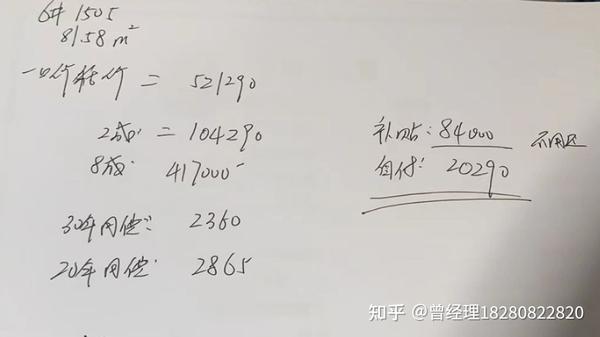 6# 1505
81.58 m²
一口价 = 521290
2成: = 104290
8成: 417000
30年月偿: 2360
20年月偿: 2865
补贴: 84000 不用还
自付: 20290
知乎 @曾经理18280822820